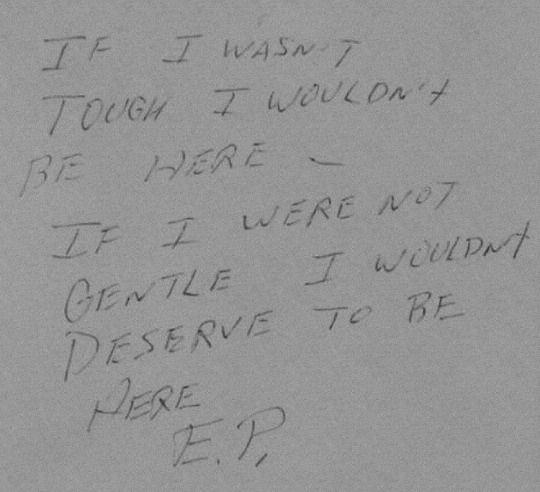 IF I WASN'T
TOUGH I WOULDN't
BE HERE —
IF I WERE NOT
GENTLE I WOULDNt
DESERVE TO BE
HERE
E.P.